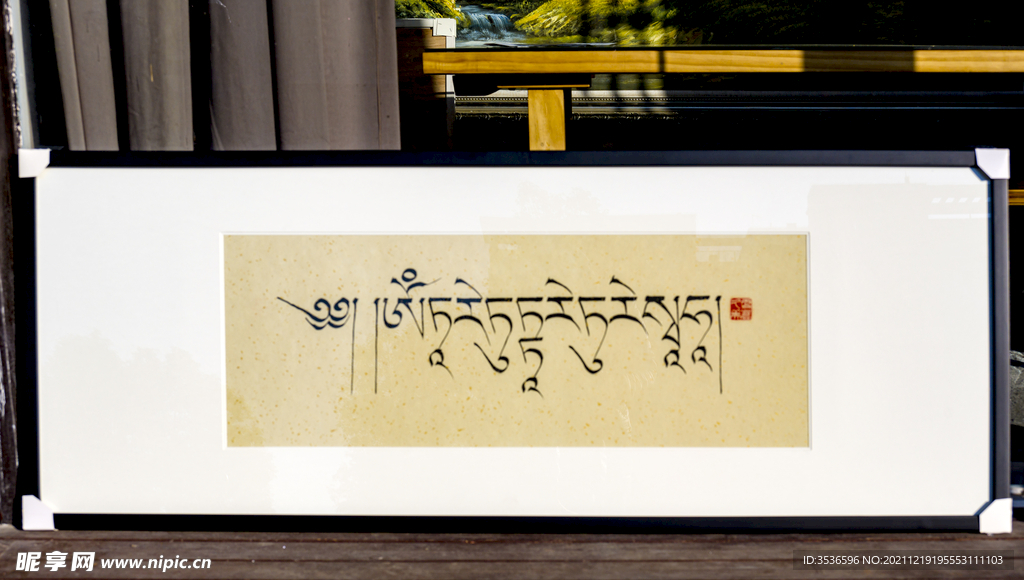 ༄༅། །ཨོཾཏཱརེཏུཏྟཱརེཏུརེསྭཱཧཱ།
昵享网 www.nipic.cn
ID:3536596 NO:20211219195553111103